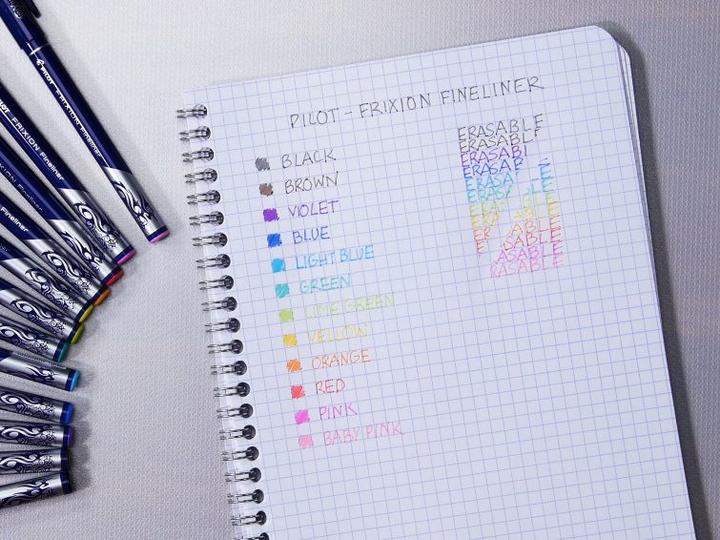 PILOT - FRIXION FINELINER
BLACK
BROWN
VIOLET
BLUE
LIGHT BLUE
GREEN
LIME GREEN
YELLOW
ORANGE
RED
PINK
BABY PINK
ERASABLE
ERASABL
ERASABI
ERASAB
ERASA LE
ERAS LE
ABLE
ABLE
ER ABLE
E SABLE
ASABLE
RASABLE
PILOT FRIXION Fineliner
FRIXION Fineliner
FRIXION Fineliner
Fineliner